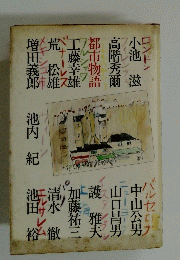 ロンドン
小池 滋
高階秀爾
都市物語
工藤幸雄
ベナーレス
荒 松雄
増田義郎
池内 紀
バルセロナ
中山公男
山口昌男
護 雅夫
加藤祐三
パリ
清水 徹
エルサレム
池田 裕